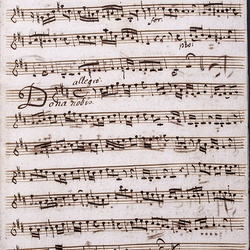 for:
pmo:
allegro.
Dona nobis.